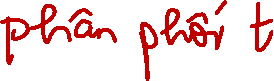 phân phối t